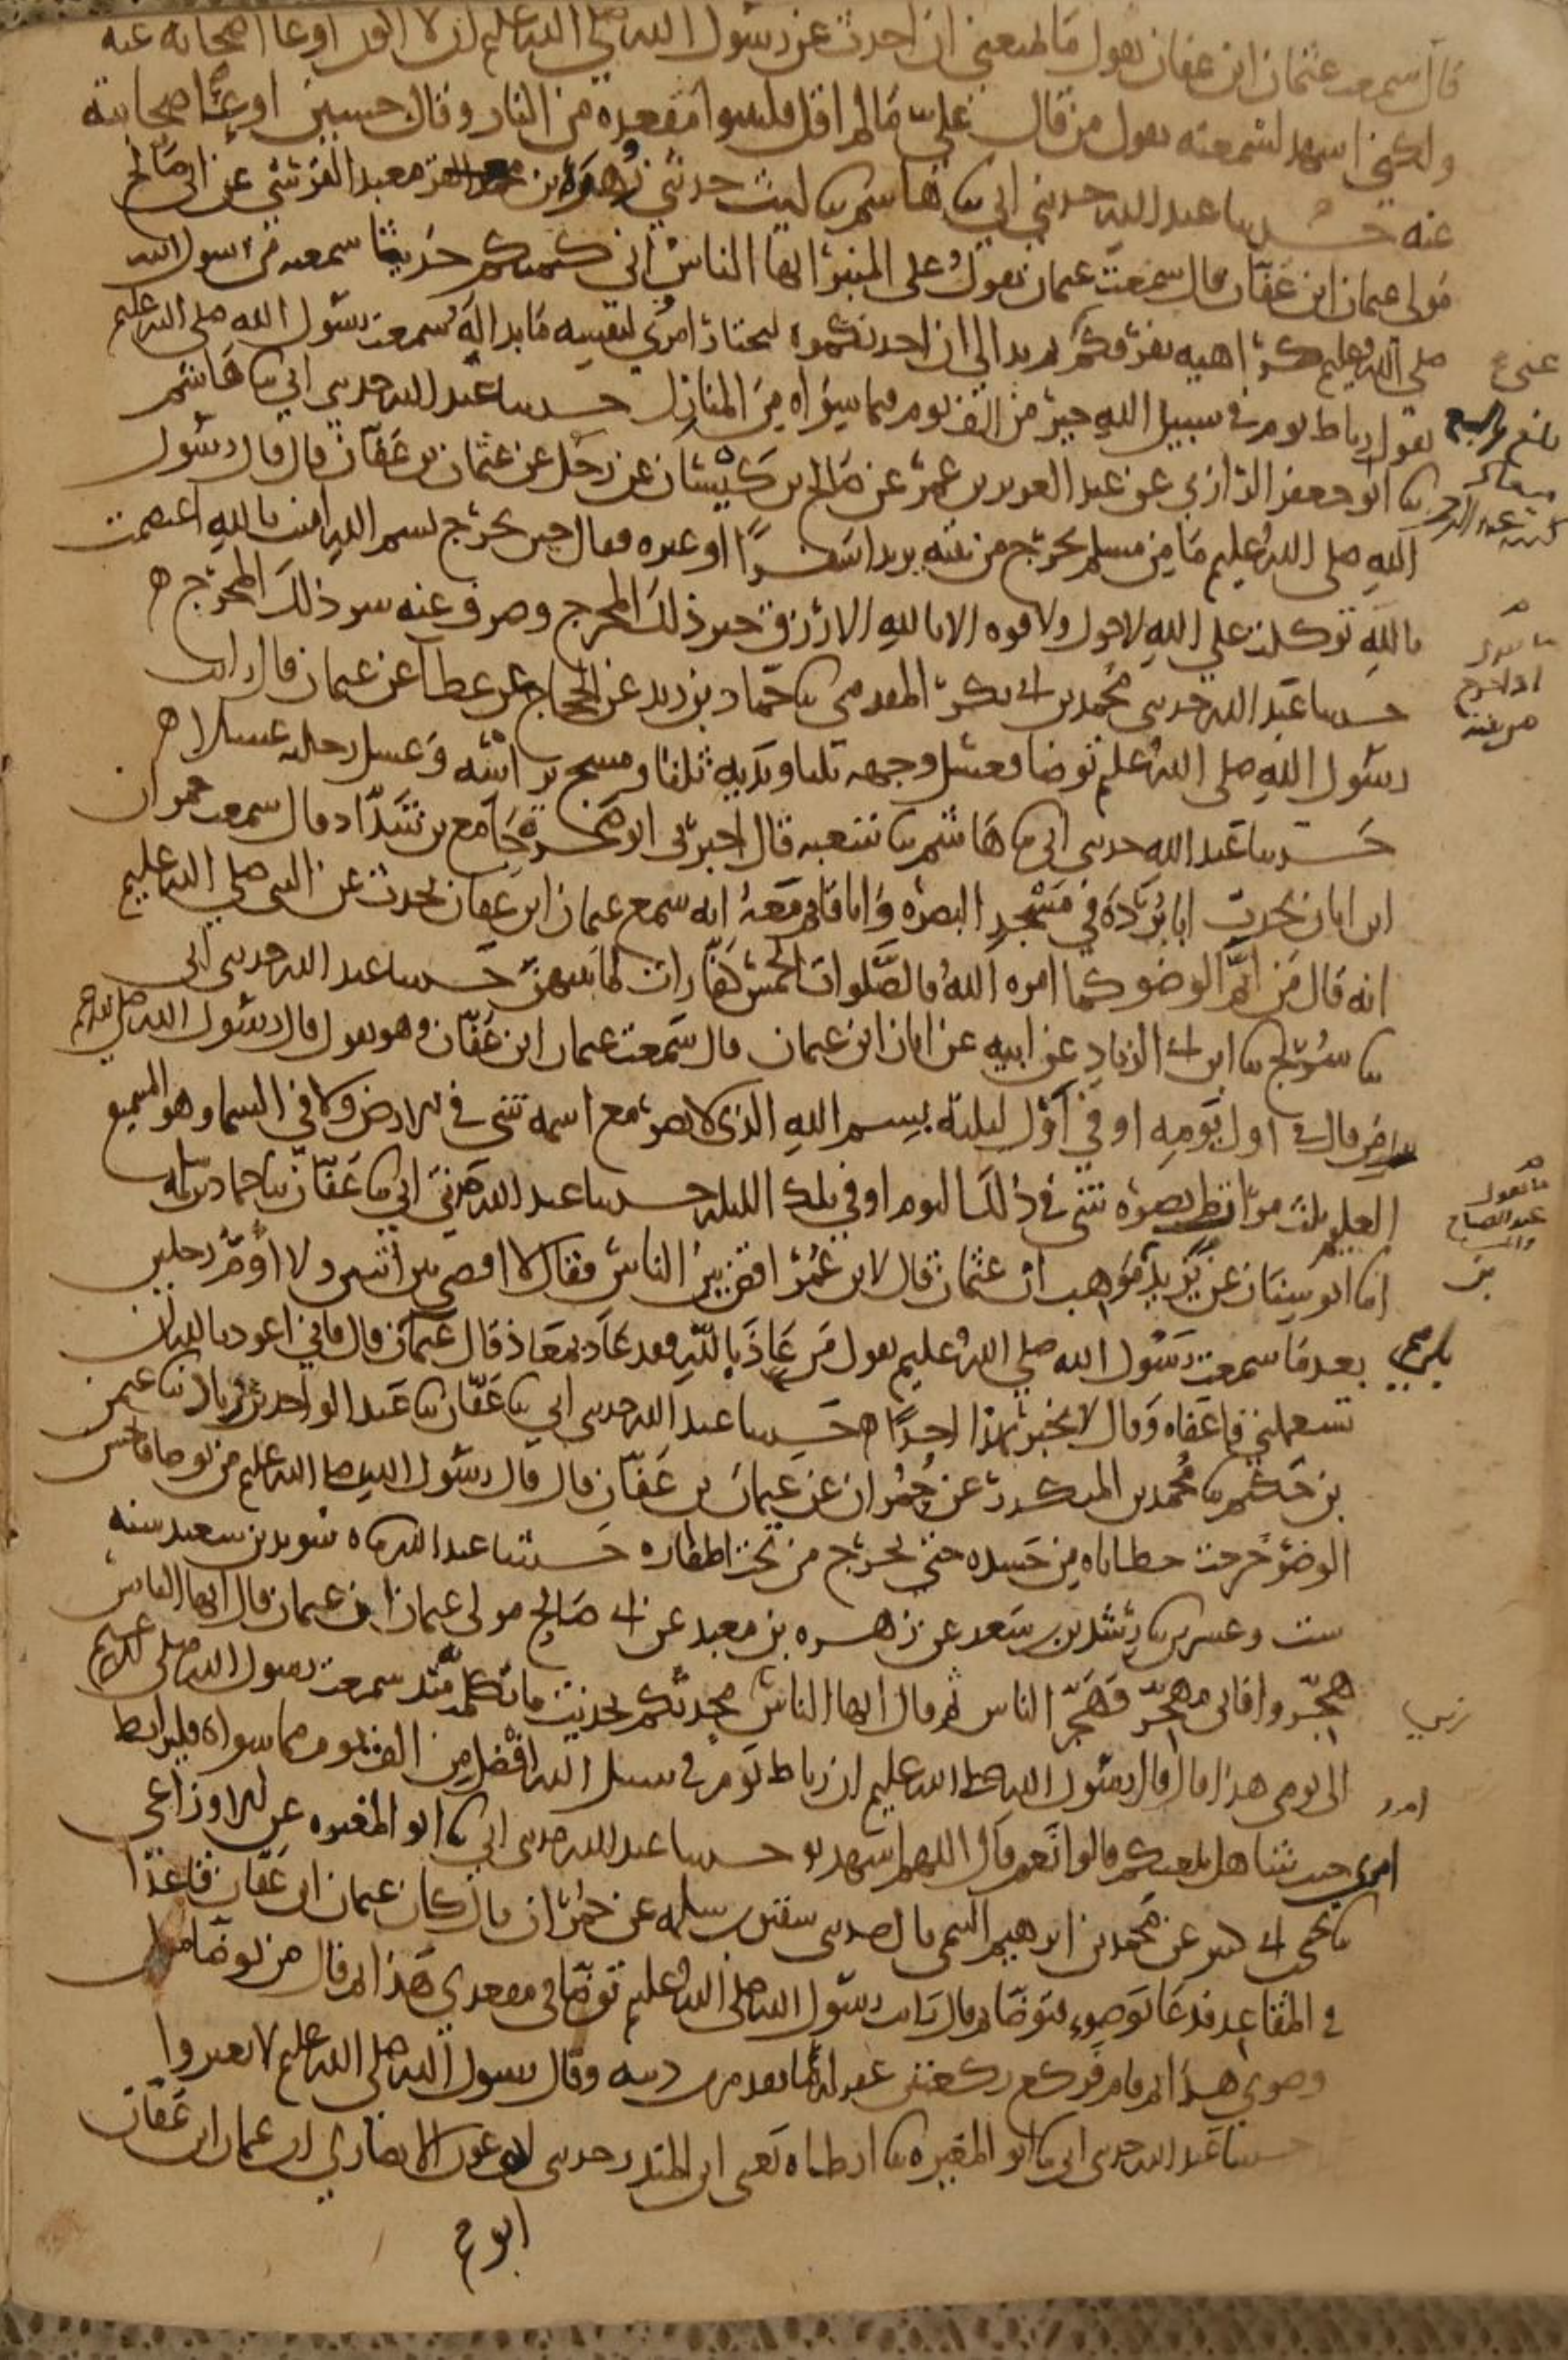 قال سمعت عثمان ابن عفان يقول ما يمنعني ان احدث عن رسول الله صلى الله عليه ان لا اكون اوعا اصحابه عنه
ولكني اشهد لسمعته يقول من قال علي ما لم اقل فليتبوا مقعده من النار وقال حسين اوعى اصحابه
عنه حدثنا عبد الله حدثني ابي ثنا هاشم ثنا ليث حدثني زهرة بن معبد القرشي عن ابي صالح
مولى عثمان ابن عفان قال سمعت عثمان يقول على المنبر ايها الناس اني كتمتكم حديثا سمعته من رسول الله
صلى الله عليه كراهية تفرقكم ثم بدا لي ان احدثكموه ليختار امرئ لنفسه ما بدا له سمعت رسول الله صلى الله عليه
عني
يقول رباط يوم في سبيل الله خير من الف يوم فيما سواه من المنازل حدثنا عبد الله حدثني ابي ثنا هاشم
ثنا ابو جعفر الرازي عن عبد العزيز بن عمر عن صالح بن كيسان عن رجل عن عثمان بن عفان قال قال رسول
الله صلى الله عليه ما من مسلم يخرج من بيته يريد سفرا او غيره فقال حين يخرج بسم الله امنت بالله اعتصمت
بالله توكلت على الله لا حول ولا قوة الا بالله الا رزق خير ذلك المخرج وصرف عنه شر ذلك المخرج ه
ما يقول
اذا خرج
من بيته
حدثنا عبد الله حدثني محمد بن ابي بكر المقدمي ثنا حماد بن زيد عن الحجاج عن عطا عن عثمان قال رايت
رسول الله صلى الله عليه توضا فغسل وجهه ثلثا ويديه ثلثا ومسح براسه وغسل رجليه غسلا ه
حدثنا عبد الله حدثني ابي ثنا هاشم ثنا شعبة قال اخبرني ابو صخرة جامع بن شداد قال سمعت حمران
ابن ابان يحدث ابا بردة في مسجد البصرة وانا قائم معه انه سمع عثمان ابن عفان يحدث عن النبي صلى الله عليه
انه قال من اتم الوضو كما امره الله فالصلوات الخمس كفارات لما بينهن حدثنا عبد الله حدثني ابي
ثنا سريج ثنا ابن ابي الزناد عن ابيه عن ابان ابن عثمان قال سمعت عثمان ابن عفان وهو يقول قال رسول الله صلى الله عليه
من قال في اول يومه او في اول ليلته بسم الله الذي لا يضر مع اسمه شي في الارض ولا في السما وهو السميع
ما يقول
عند الصباح
والمسا
العليم ثلث مرات لم يضره شي في ذلك اليوم او في تلك الليلة حدثنا عبد الله حدثني ابي ثنا عفان ثنا حماد بن سلمة
انا ابو سنان عن يزيد بن موهب ان عثمان قال لابن عمر اقض بين الناس فقال لا اقضي بين اثنين ولا اؤم رجلين
بن
بعد ما سمعت رسول الله صلى الله عليه يقول من عاذ بالله فقد عاذ بمعاذ قال عثمان قال فاني اعوذ بالله ان
تستعملني فاعفاه وقال لا تخبر بهذا احدا ه حدثنا عبد الله حدثني ابي ثنا عفان ثنا عبد الواحد بن زياد ثنا عثمن
بن حكيم ثنا محمد بن المنكدر عن حمران عن عثمان بن عفان قال قال رسول الله صلى الله عليه من توضا فاحسن
الوضؤ خرجت خطاياه من جسده حتى تخرج من تحت اظفاره حدثنا عبد الله ثناه سويد بن سعيد سنه
ست وعشرين ثنا رشدين بن سعد عن زهره بن معبد عن ابي صالح مولى عثمان ان عثمان قال ايها الناس
هجروا فاني مهجر فهجر الناس ثم قال ايها الناس محدثكم بحديث ما تكلمت به منذ سمعت رسول الله صلى الله عليه
الى يومي هذا قال قال رسول الله صلى الله عليه ان رباط يوم في سبيل الله افضل من الف يوم مما سواه فليرابط
امرؤ حيث شا هل بلغتكم قالوا نعم قال اللهم اشهد حدثنا عبد الله حدثني ابي ثنا ابو المغيره عن الاوزاعي
ثنا يحيى بن ابي كثير عن محمد بن ابرهيم التيمي قال حدثني شقيق بن سلمه عن حمران قال كان عثمان ابن عفان قاعدا
في المقاعد فدعا بوضوء فتوضا ثم قال رايت رسول الله صلى الله عليه توضا في مقعدي هذا ثم قال من توضا مثل
وضوي هذا ثم قام فركع ركعتين غفر له ما تقدم من ذنبه وقال رسول الله صلى الله عليه لا تغتروا
حدثنا عبد الله حدثني ابي ثنا ابو المغيره ثنا ارطاه يعني ابن المنذر حدثني ابو عون الانصاري ان عثمان ابن عفان